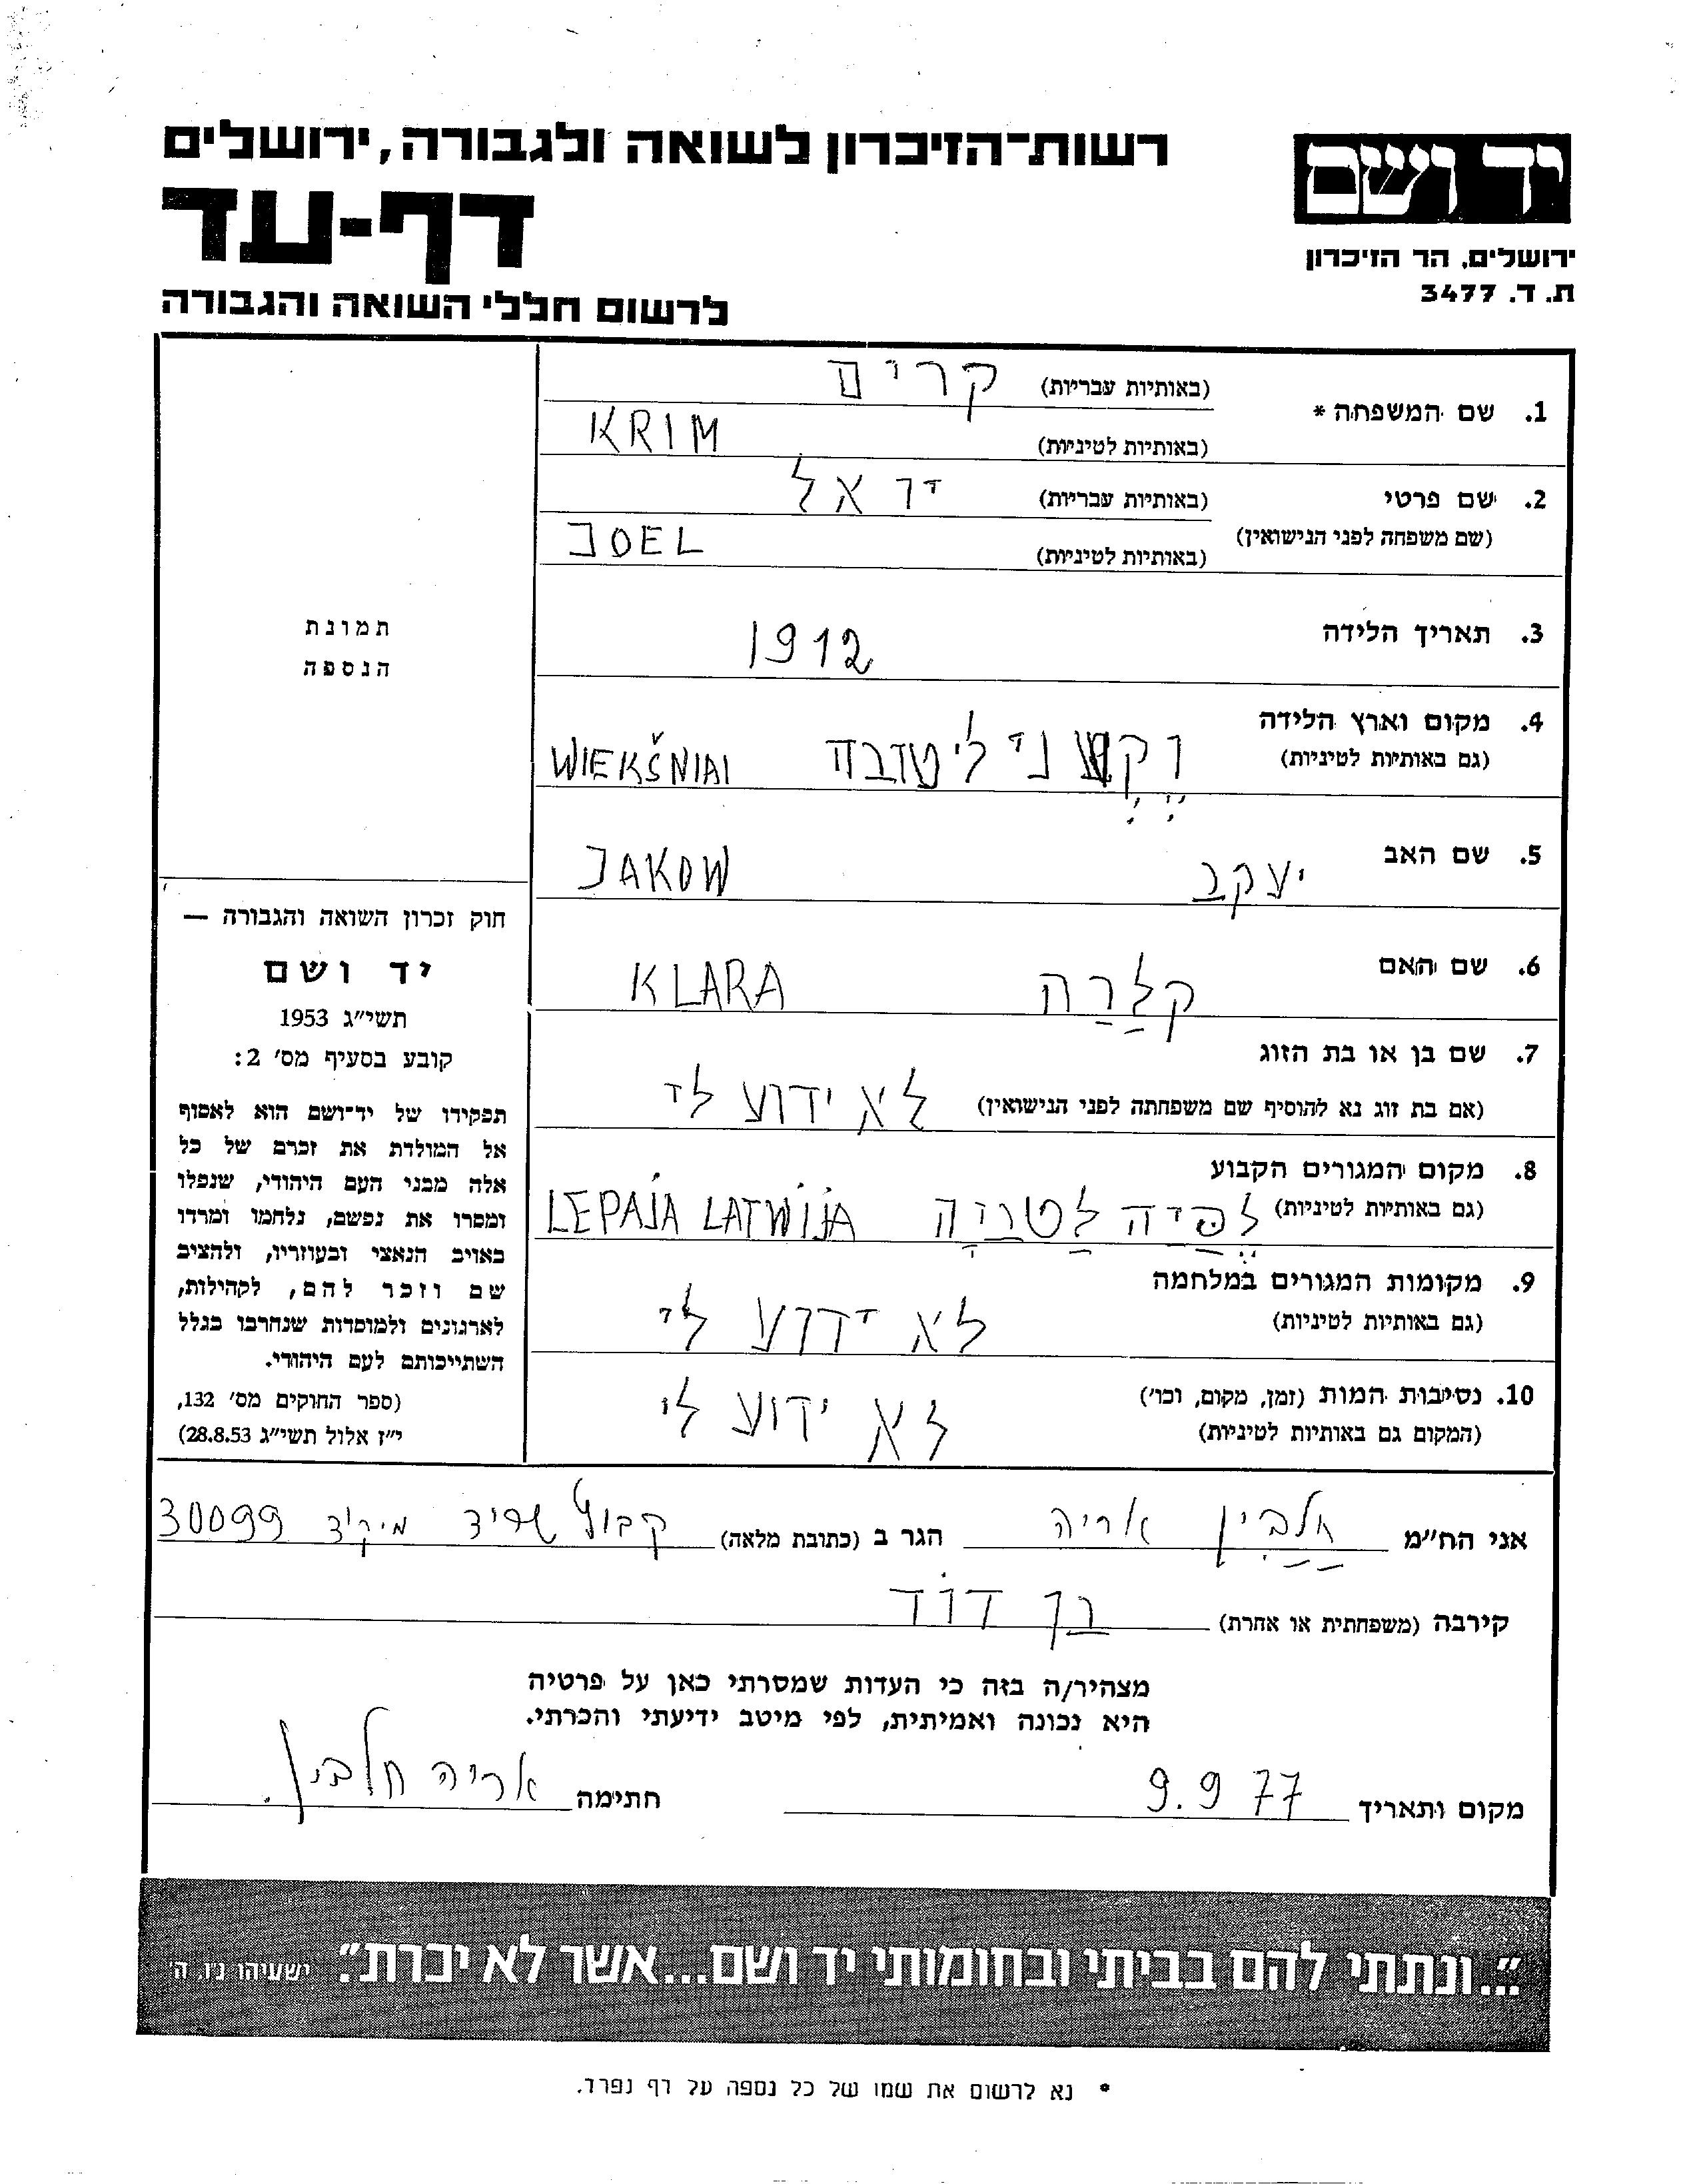 יד ושם
רשות־הזיכרון לשואה ולגבורה, ירושלים
דף-עד
ירושלים, הר הזיכרון
ת. ד. 3477
לרשום חללי השואה והגבורה
1. שם המשפחה * (באותיות עבריות) קרים
(באותיות לטיניות) KRIM
2. שם פרטי (באותיות עבריות) יואל
(שם משפחה לפני הנישואין) (באותיות לטיניות) JOEL
3. תאריך הלידה 1912
4. מקום וארץ הלידה
(גם באותיות לטיניות) וקשני ליטובה WIEKŠNIAI
5. שם האב יעקב JAKOW
6. שם האם קלרה KLARA
7. שם בן או בת הזוג
(אם בת זוג נא להוסיף שם משפחתה לפני הנישואין) לא ידוע לי
8. מקום המגורים הקבוע
(גם באותיות לטיניות) לפיה לטביה LEPAJA LATWIJA
9. מקומות המגורים במלחמה
(גם באותיות לטיניות) לא ידוע לי
10. נסיבות המות (זמן, מקום, וכו')
(המקום גם באותיות לטיניות) לא ידוע לי
תמונת
הנספה
חוק זכרון השואה והגבורה —
יד ושם
תשי"ג 1953
קובע בסעיף מס' 2:
תפקידו של יד־ושם הוא לאסוף
אל המולדת את זכרם של כל
אלה מבני העם היהודי, שנפלו
ומסרו את נפשם, נלחמו ומרדו
באויב הנאצי ובעוזריו, ולהציב
שם וזכר להם, לקהילות,
לארגונים ולמוסדות שנחרבו בגלל
השתייכותם לעם היהודי.
(ספר החוקים מס' 132,
י"ז אלול תשי"ג 28.8.53)
אני הח"מ חלבין אריה הגר ב (כתובת מלאה) קבוץ שריד מיקוד 30099
קירבה (משפחתית או אחרת) בן דוד
מצהיר/ה בזה כי העדות שמסרתי כאן על פרטיה
היא נכונה ואמיתית, לפי מיטב ידיעתי והכרתי.
מקום ותאריך 9.9.77 חתימה אריה חלבין.
"...ונתתי להם בביתי ובחומותי יד ושם...אשר לא יכרת". ישעיהו נ"ו, ה'
* נא לרשום את שמו של כל נספה על דף נפרד.